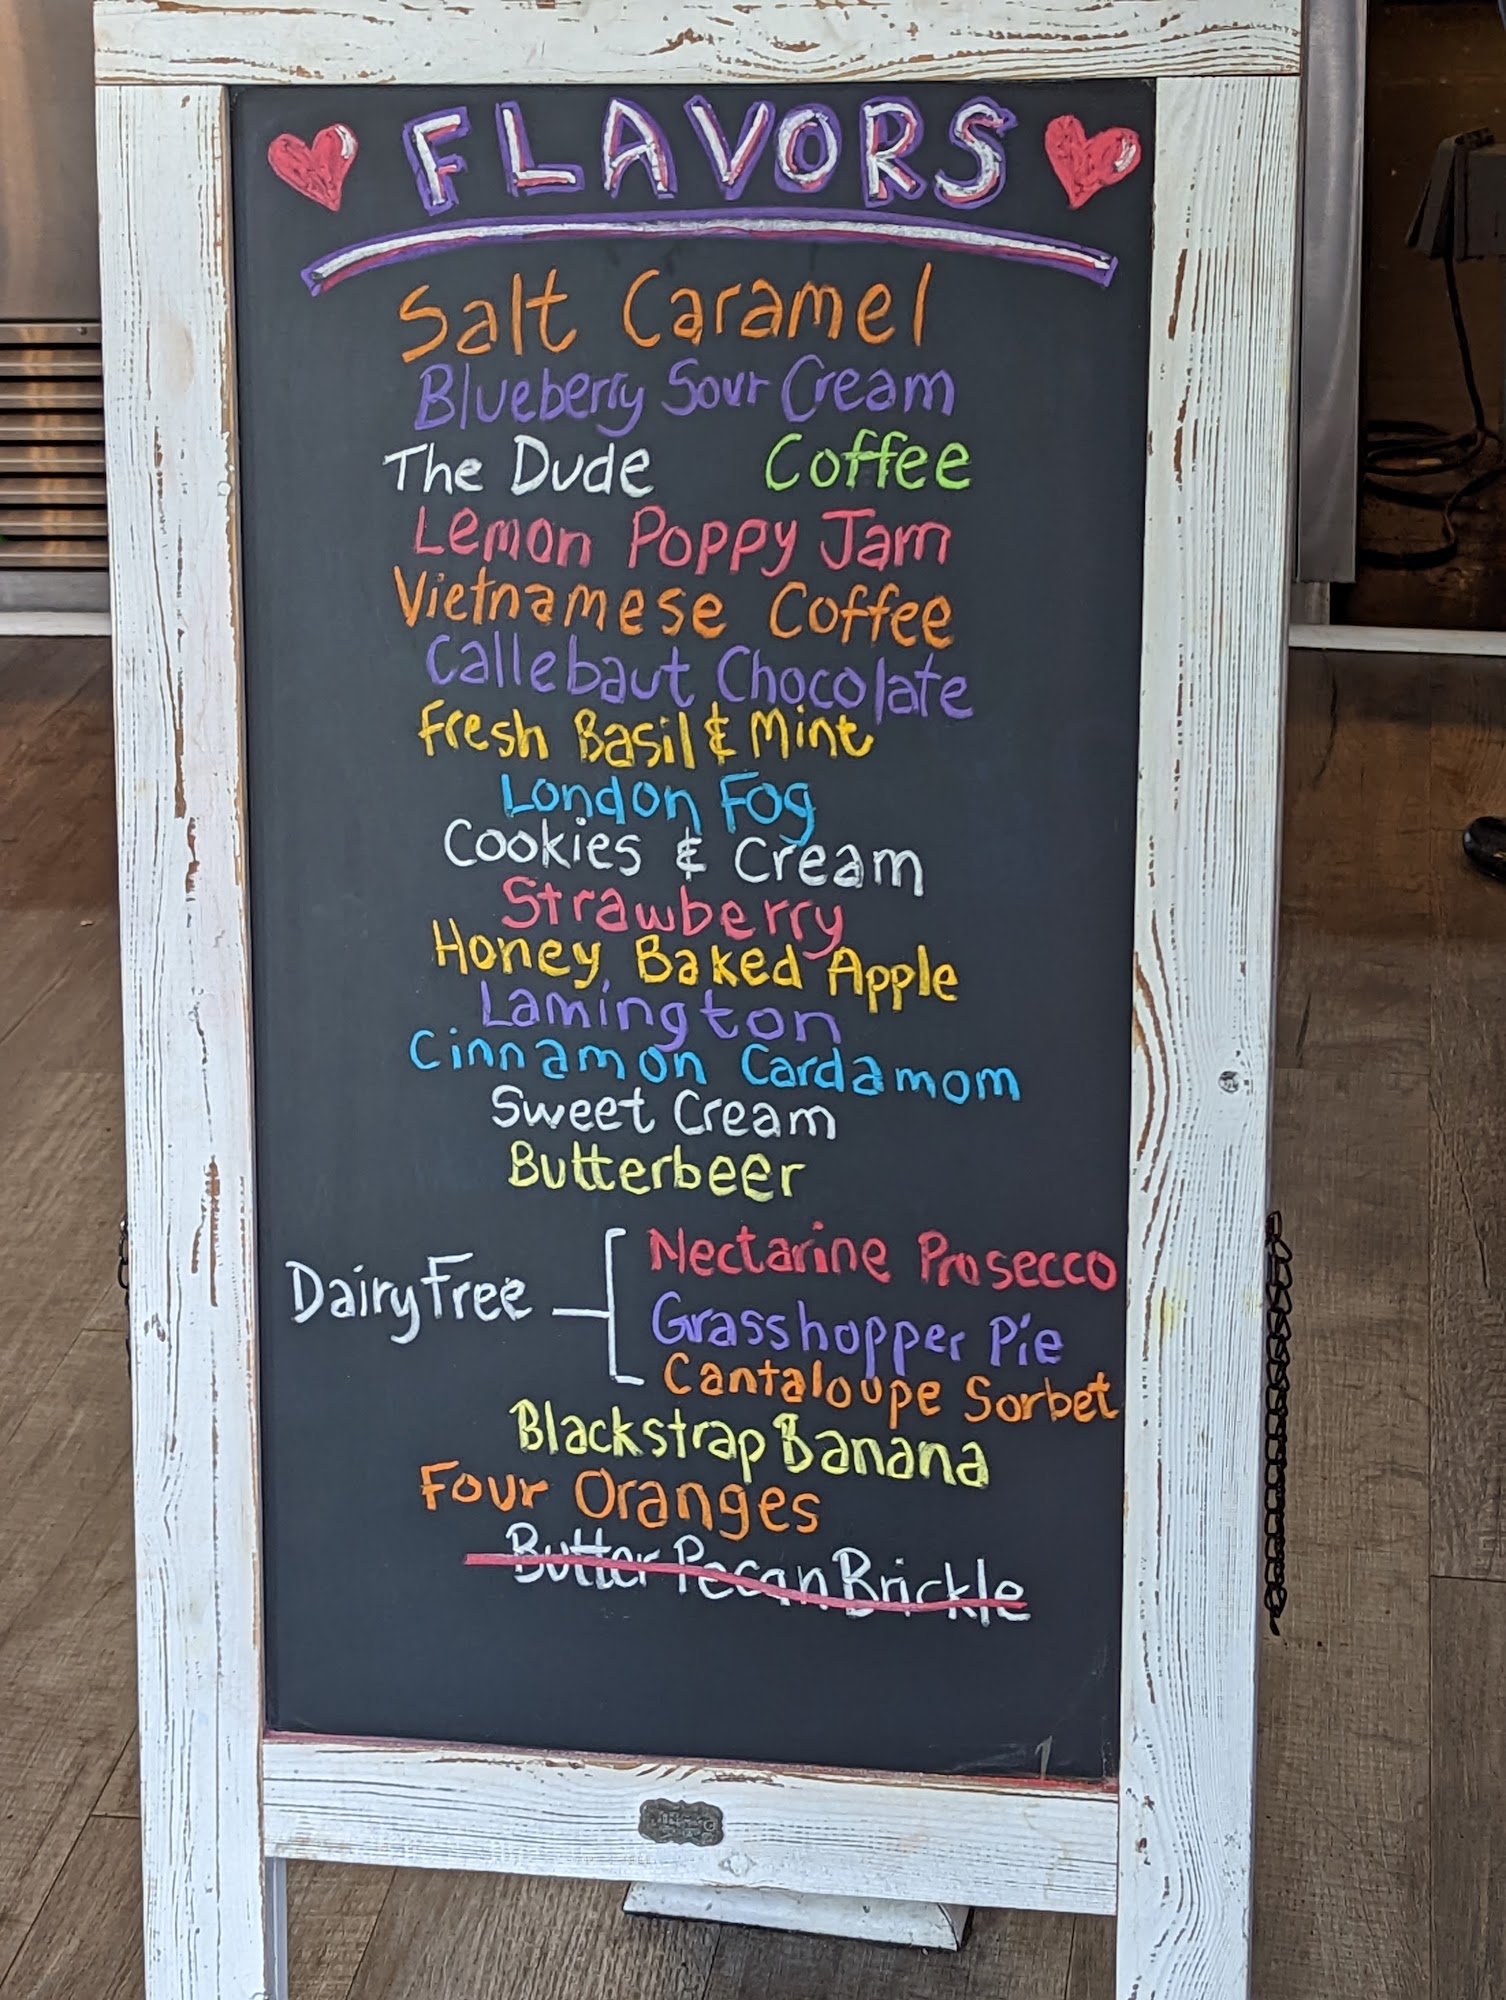 FLAVORS
Salt Caramel
Blueberry Sour Cream
The Dude Coffee
Lemon Poppy Jam
Vietnamese Coffee
Callebaut Chocolate
Fresh Basil & Mint
London Fog
Cookies & Cream
Strawberry
Honey Baked Apple
Lamington
Cinnamon Cardamom
Sweet Cream
Butterbeer
Dairy Free
Nectarine Prosecco
Grasshopper Pie
Cantaloupe Sorbet
Blackstrap Banana
Four Oranges
Butter Pecan Brickle